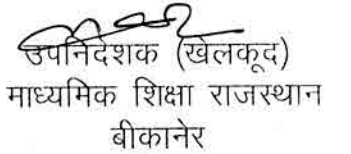 उपनिदेशक (खेलकूद)
माध्यमिक शिक्षा राजस्थान
बीकानेर